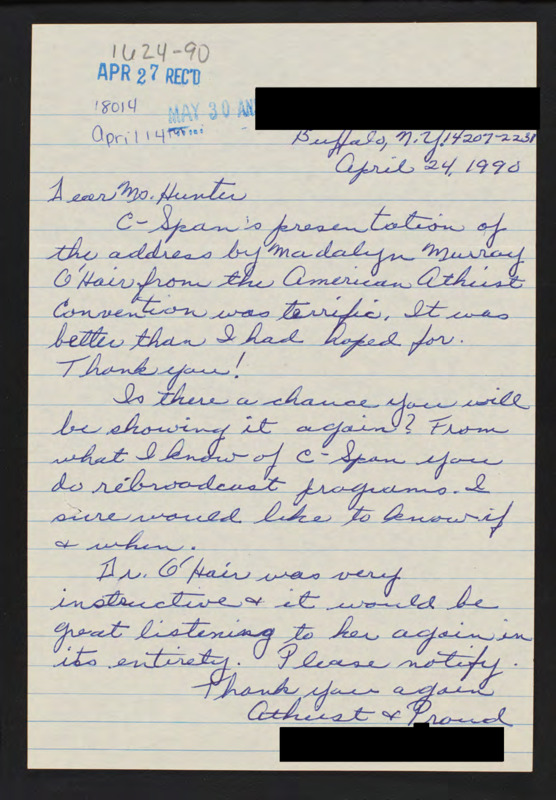 1624-90
APR 27 REC'D
18014
MAY 30 AN
April 14
Buffalo, N.Y. 14207-2231
April 24, 1990
Dear Ms. Hunter
C-Span's presentation of
the address by Madalyn Murray
O'Hair from the American Atheist
Convention was terrific. It was
better than I had hoped for.
Thank you!
Is there a chance you will
be showing it again? From
what I know of C-Span you
do rebroadcast programs. I
sure would like to know if
& when.
Dr. O'Hair was very
instructive & it would be
great listening to her again in
its entirety. Please notify.
Thank you again
Atheist & Proud